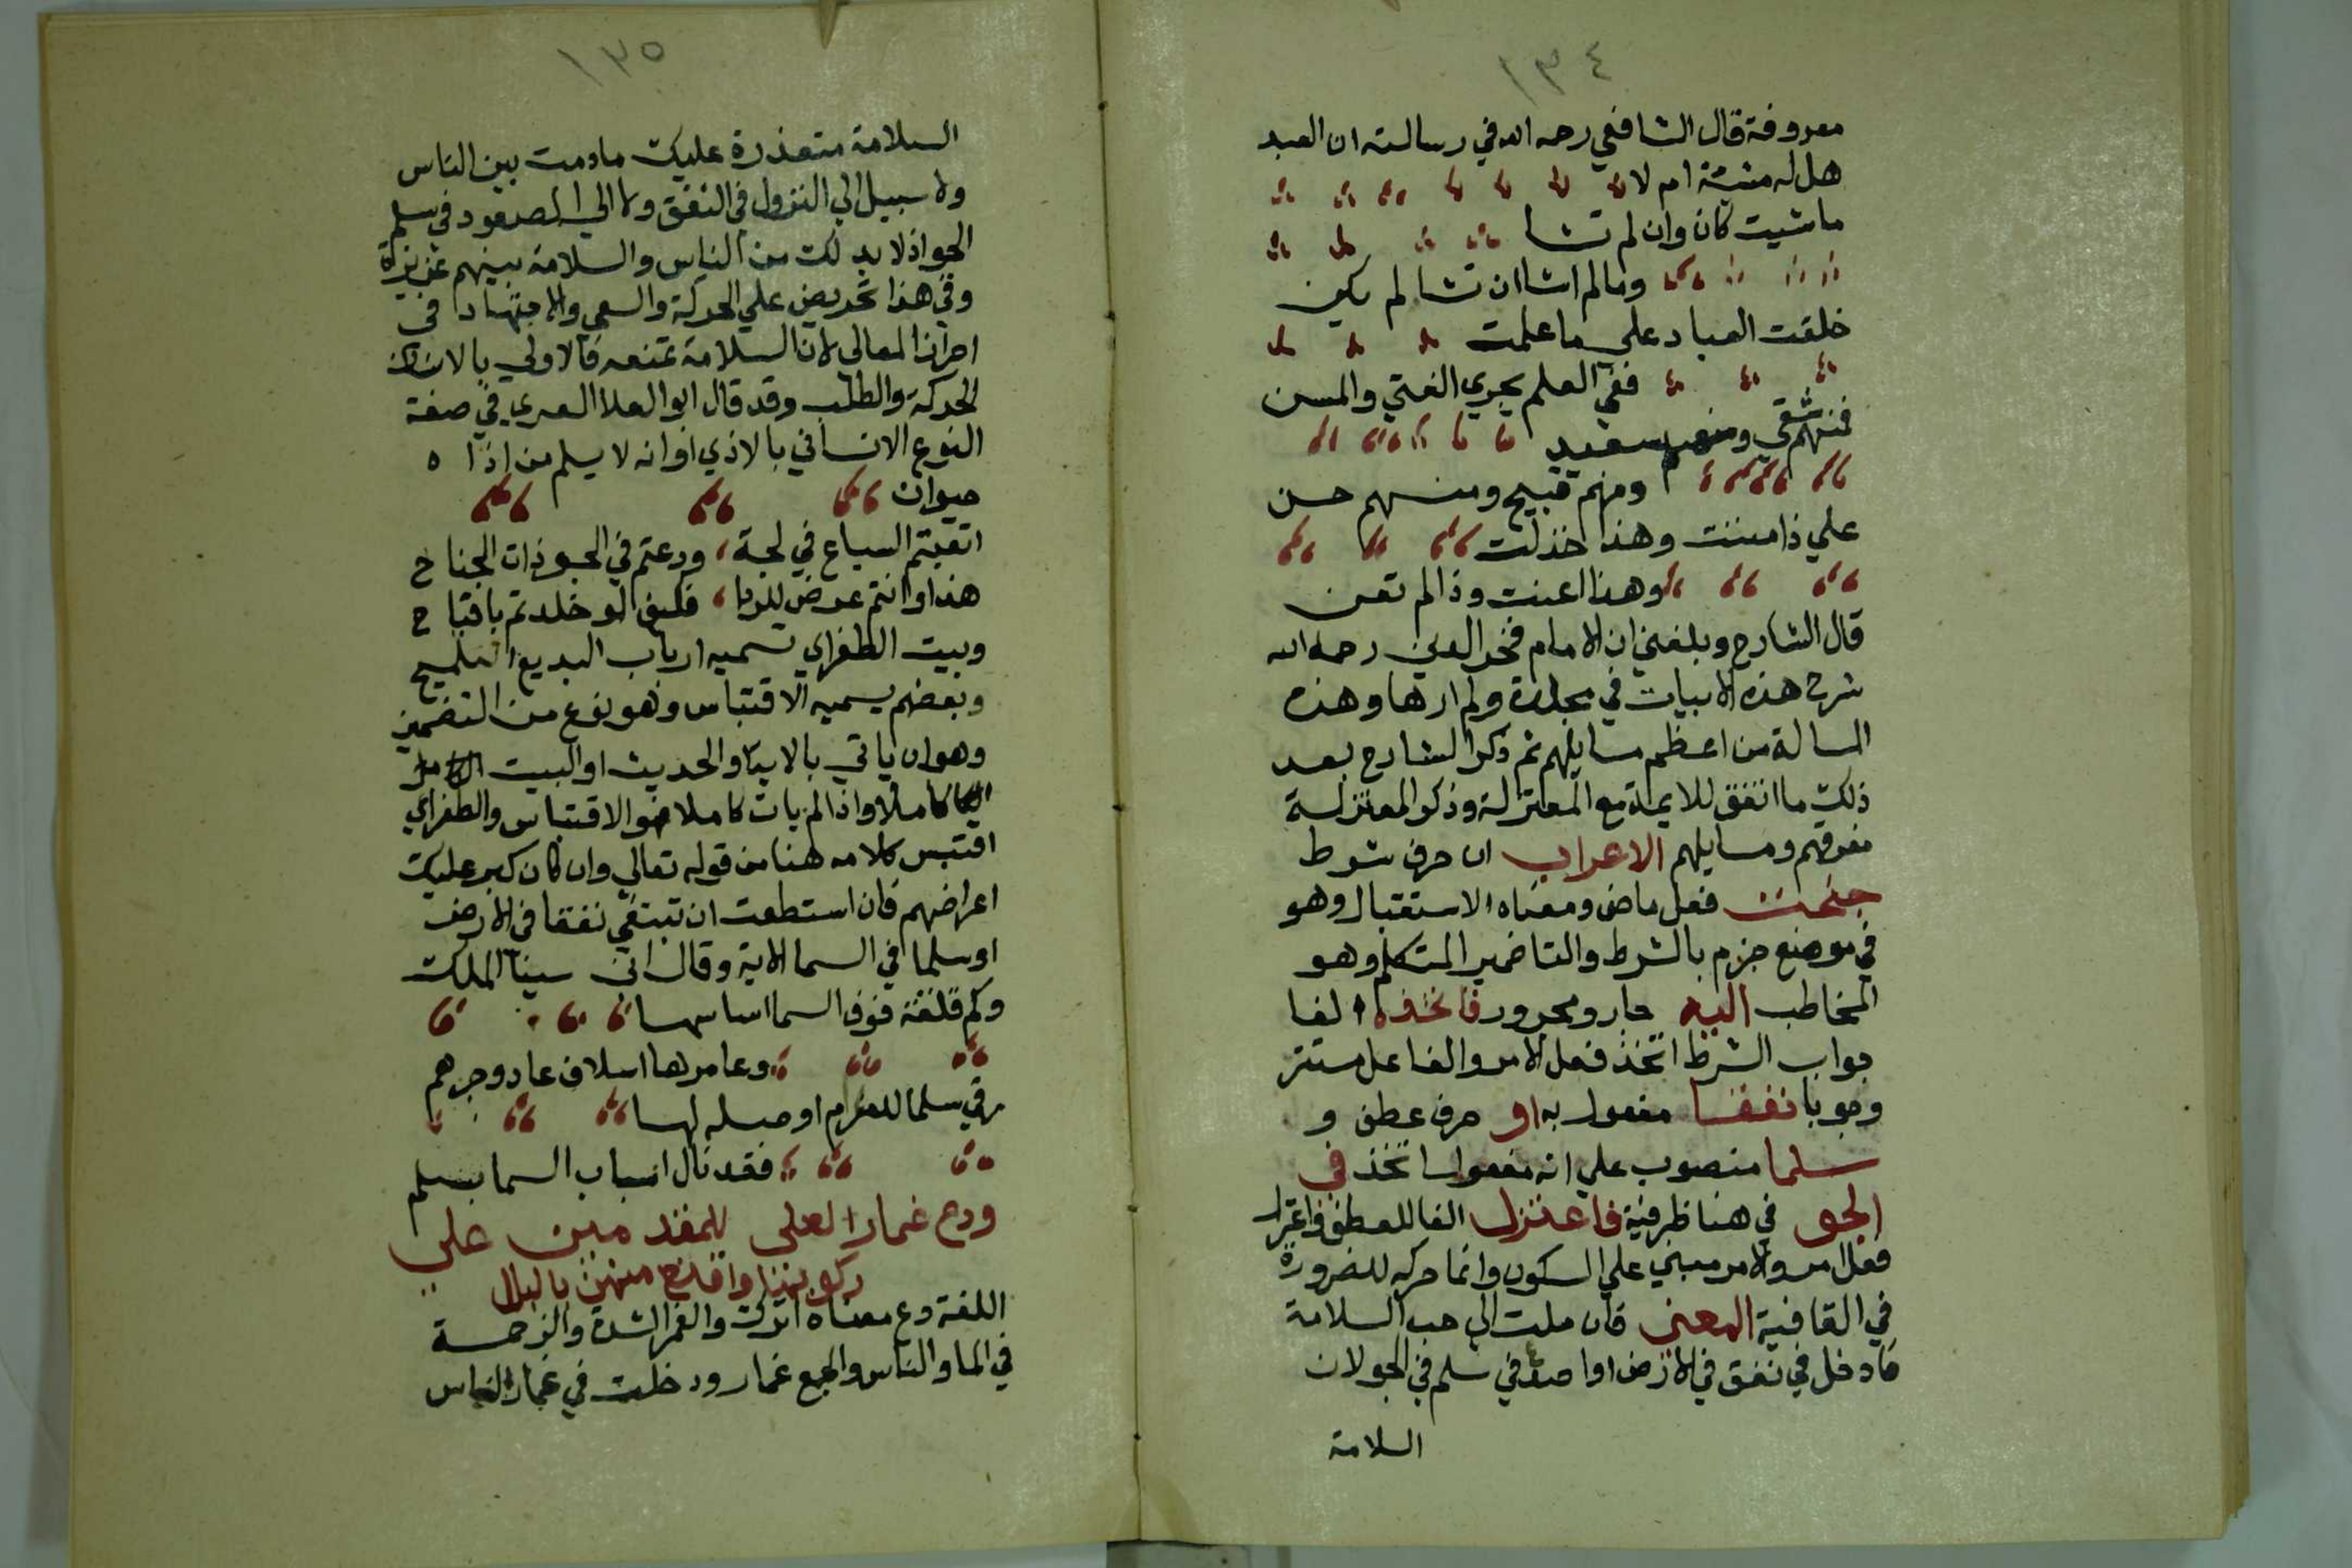 ١٣٤
معروفة قال الشافعي رحمه الله في رسالته ان العبد
هل له مشيئة ام لا
ماشيت كان وان لم تشا
ومالم اشا ان تشا لم يكن
خلقت العباد على ما علمت
ففي العلم يجري الفتي والمسن
فمنهم شقي ومنهم سعيد
ومنهم قبيح ومنهم حسن
علي ذا مننت وهذا خذلت
وهذا اعنت وذا لم تعن
قال الشارح وبلغني ان الامام فخر الدين رحمه الله
شرح هذه الابيات في مجلدة ولم ارها وهذه
المسالة من اعظم مسايلهم ثم ذكر الشارح بعد
ذلك ما اتفق للايمة مع المعتزلة وذكر المعتزلة
وفرقهم ومسايلهم الاعراب ان حرف شرط
جنحت فعل ماض ومعناه الاستقبال وهو
في موضع جزم بالشرط والتا ضمير المتكلم وهو
المخاطب اليه جار ومجرور فاتخذ الفا
جواب الشرط اتخذ فعل الامر والفاعل مستتر
وجوبا نفقا مفعول به او حرف عطف و
سلما منصوب علي انه مفعول اتخذ في
الجو في هنا ظرفية فاعتزل الفا للعطف واعتزل
فعل امر والامر مبني علي السكون وانما حركه للضرورة
في القافية المعنى فان ملت الي حب السلامة
فادخل في نفق في الارض او اصعد في سلم في الجو لان
السلامة
١٣٥
السلامة متعذرة عليك مادمت بين الناس
ولا سبيل الي النزول في النفق ولا الي الصعود في سلم
الجو اذ لا بد لك من الناس والسلامة بينهم عزيزة
وفي هذا تحريض علي الحركة والسعي والاجتهاد في
احراز المعالي لان السلامة تمنعه فالاولي بالانسان
الحركة والطلب وقد قال ابو العلا المعري في صفة
النوع الانساني بالاذي او انه لا يسلم من اذا ه
حيوان
اتقيتم السباع في لجة ، ورعتم في الجو ذات الجناح
هذا وانتم عرض للردا ، فكيف لو خلدتم يا قباح
وبيت الطغراي تسميه ارباب البديع التلميح
وبعضهم يسميه الاقتباس وهو نوع من التضمين
وهو ان ياتي بالاية او الحديث او البيت
كاملا واذا لم يات كاملا فهو الاقتباس والطغراي
اقتبس كلامه هنا من قوله تعالي وان كان كبر عليك
اعراضهم فان استطعت ان تبتغي نفقا في الارض
او سلما في السما الاية وقال ابن سينا الملك
وكم قلعة فوق السما اساسها
وعامرها اسلاف عاد وجرهم
رقي سلما للعزم اوصله لها
فقد نال اسباب السما بسلم
ودع غمار العلى للمقدمين على
ركوبها واقتنع منهن بالبلل
اللغة دع معناه اترك والغمر الشدة والزحمة
في الما والناس والجمع غمار ودخلت في غمار الناس